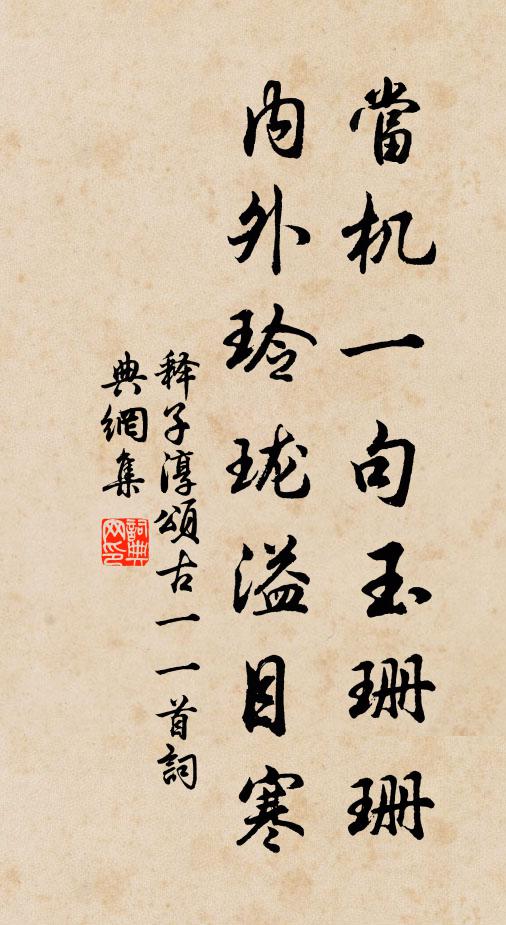 當机一句玉珊珊
内外玲珑溢目寒
释子淳頌古一一首詞
典網集
詞典网印